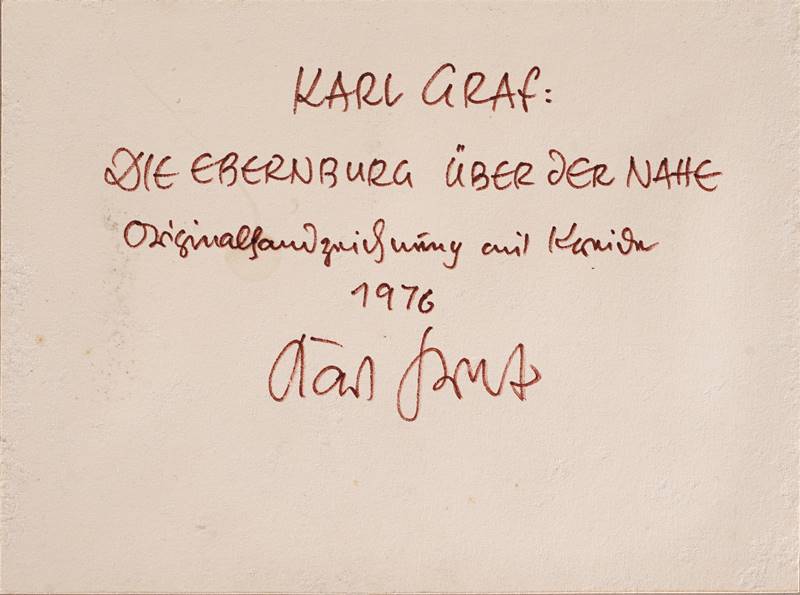 KARL GRAF:
DIE EBERNBURG ÜBER DER NAHE
Originalhandzeichnung mit Kreide
1976
Karl Graf